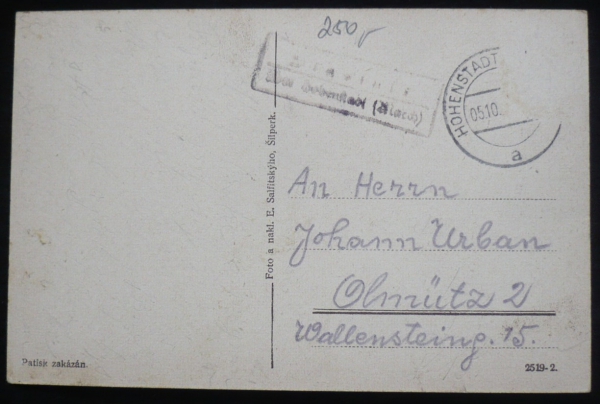 250,-
über Hohenstadt (March)
HOHENSTADT
05.10.
a
An Herrn
Johann Urban
Olmütz 2
Wallensteing. 15.
Foto a nakl. E. Šalfitského, Šilperk.
Patisk zakázán.
2519-2.